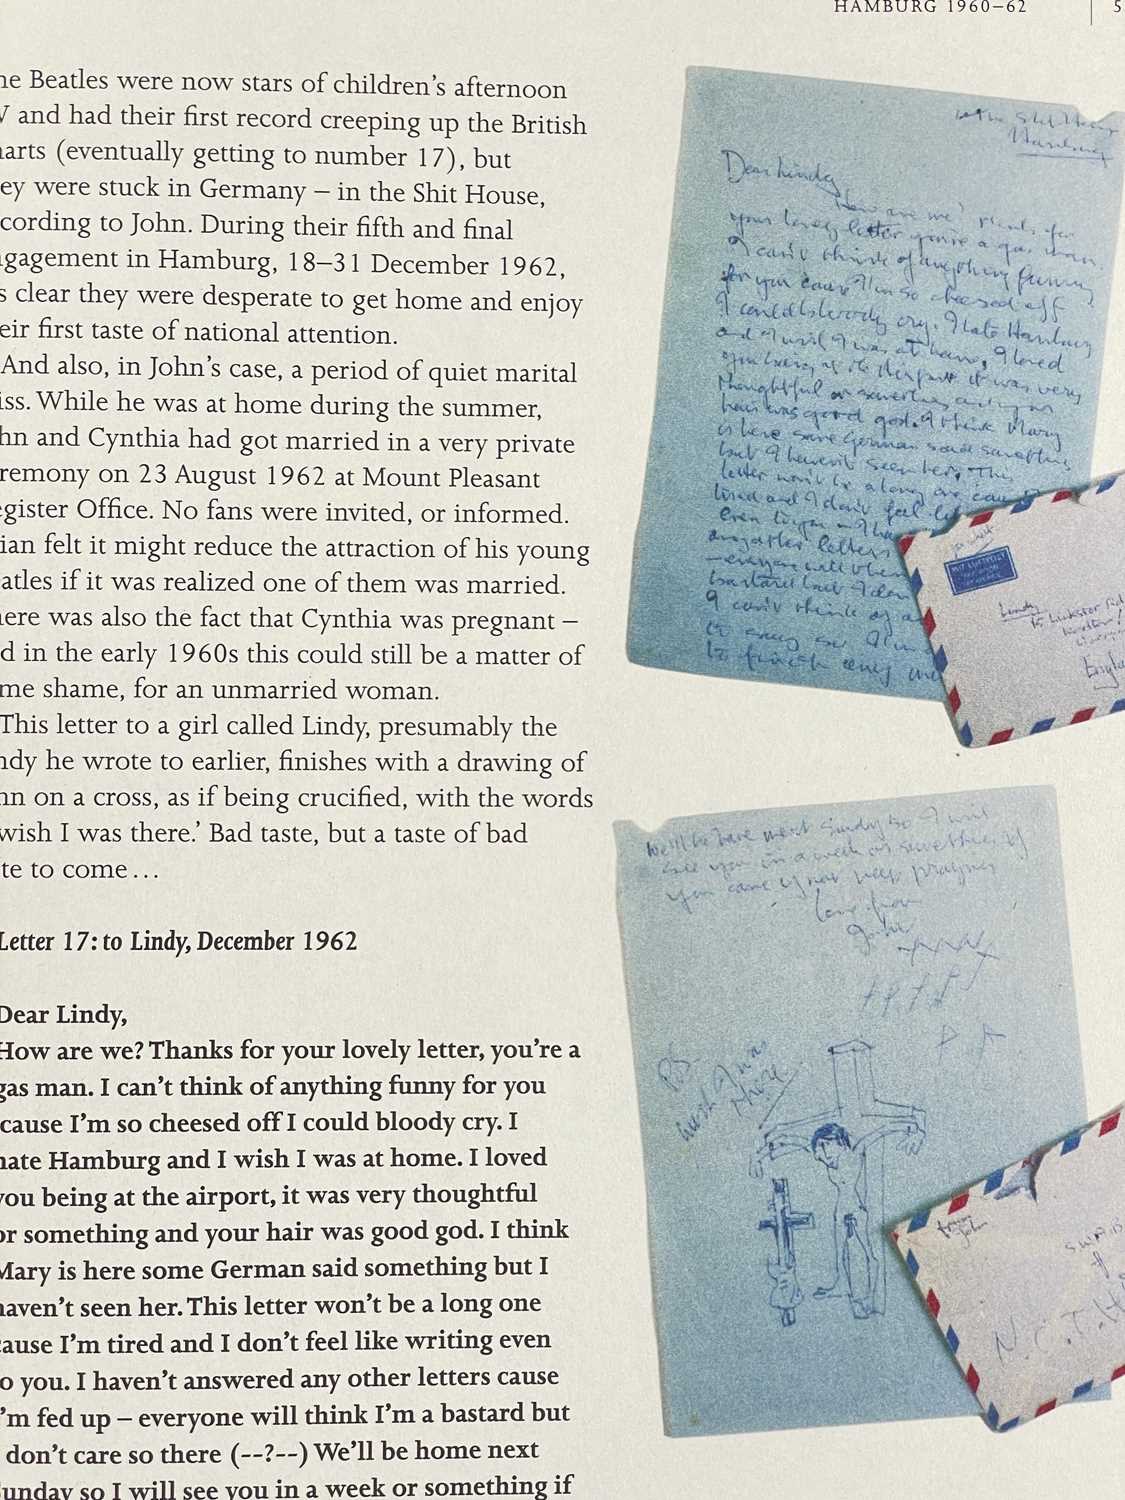 HAMBURG 1960–62
5
he Beatles were now stars of children's afternoon
V and had their first record creeping up the British
harts (eventually getting to number 17), but
ey were stuck in Germany – in the Shit House,
cording to John. During their fifth and final
gagement in Hamburg, 18–31 December 1962,
s clear they were desperate to get home and enjoy
eir first taste of national attention.
And also, in John's case, a period of quiet marital
iss. While he was at home during the summer,
hn and Cynthia had got married in a very private
remony on 23 August 1962 at Mount Pleasant
egister Office. No fans were invited, or informed.
ian felt it might reduce the attraction of his young
eatles if it was realized one of them was married.
here was also the fact that Cynthia was pregnant –
d in the early 1960s this could still be a matter of
me shame, for an unmarried woman.
This letter to a girl called Lindy, presumably the
ndy he wrote to earlier, finishes with a drawing of
hn on a cross, as if being crucified, with the words
wish I was there.' Bad taste, but a taste of bad
te to come…
Letter 17: to Lindy, December 1962
Dear Lindy,
How are we? Thanks for your lovely letter, you're a
gas man. I can't think of anything funny for you
cause I'm so cheesed off I could bloody cry. I
hate Hamburg and I wish I was at home. I loved
you being at the airport, it was very thoughtful
or something and your hair was good god. I think
Mary is here some German said something but I
haven't seen her. This letter won't be a long one
cause I'm tired and I don't feel like writing even
to you. I haven't answered any other letters cause
I'm fed up – everyone will think I'm a bastard but
don't care so there (--?--) We'll be home next
Sunday so I will see you in a week or something if
Hamburg
Dear Lindy
How are we? Thanks for
your lovely letter you're a gas man.
I can't think of anything funny
for you cause I'm so cheesed off
I could bloody cry. I hate Hamburg
and I wish I was at home, I loved
you being at the airport it was very
thoughtful or something and your
hair was good god. I think Mary
is here some German said something
but I haven't seen her. This
letter won't be a long one cause
tired and I don't feel
even to you
any other letters
– everyone will think
bastard but I don
I can't think of a
to finish
MIT LUFTPOST
Lindy
England
We'll be home next Sunday so I will
see you in a week or something if
you come
love from
John
XXXX
PS
wish I was
there
from
John